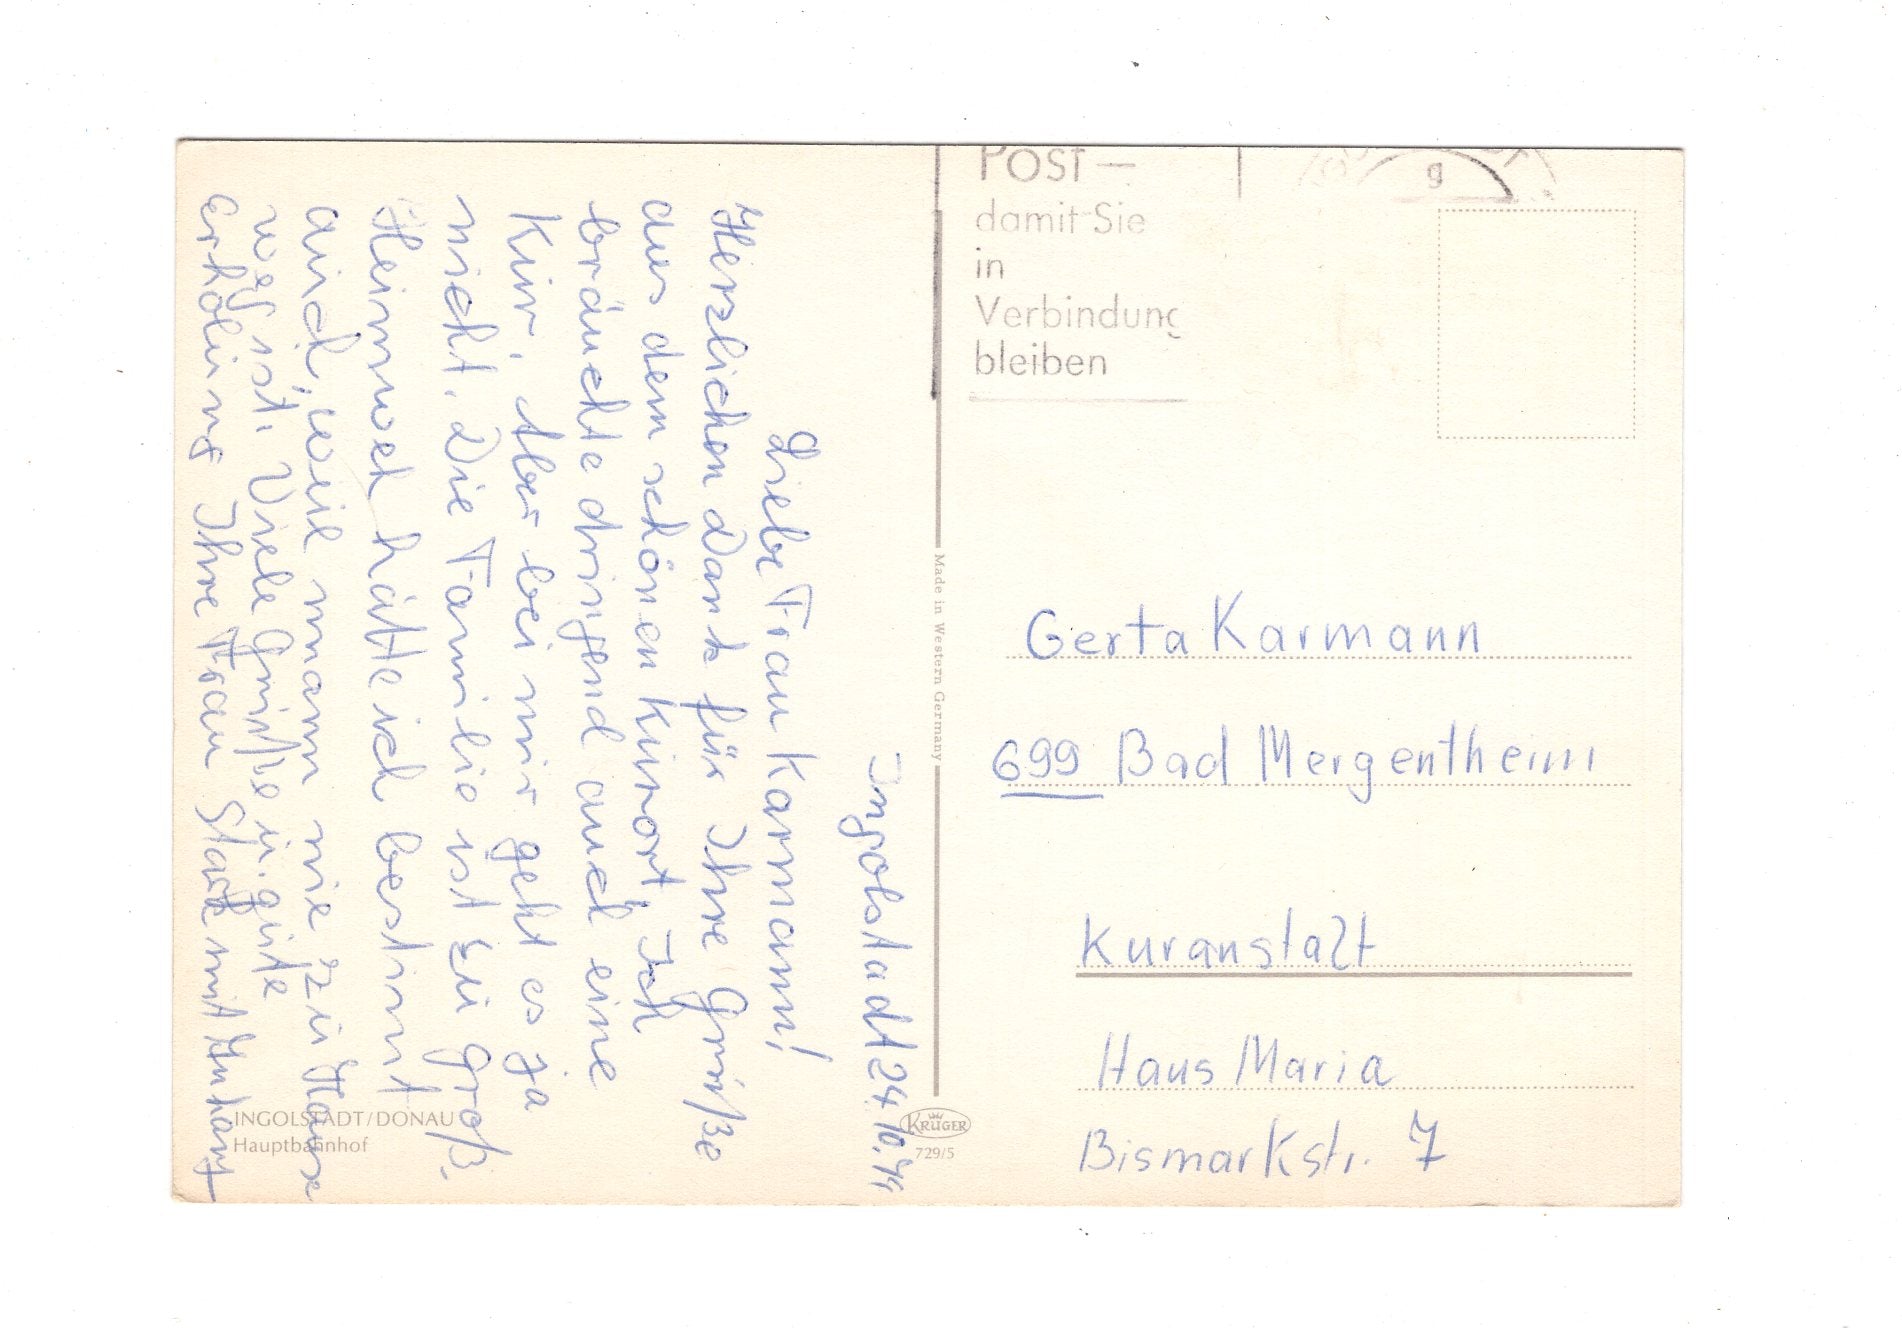 Ingolstadt 24.10.74
Liebe Frau Karmann!
Herzlichen Dank für Ihre Grüße
aus dem schönen Kurort. Ich
bräuchte dringend auch eine
Kur. Aber bei mir geht es ja
nicht. Die Familie ist zu groß.
Heimweh hätte ich bestimt
auch, weil mann nie zu Hause
weg ist. Viele Grüße u. gute
Erholung Ihre Frau Stark mit Anhang
INGOLSTADT/DONAU
Hauptbahnhof
Made in Western Germany
KRÜGER
729/5
Post –
damit Sie
in
Verbindung
bleiben
g
Gerta Karmann
699 Bad Mergentheim
Kuranstalt
Haus Maria
Bismarkstr. 7